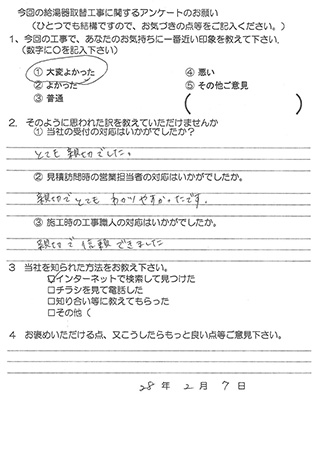 今回の給湯器取替工事に関するアンケートのお願い
(ひとつでも結構ですので、お気づきの点等をご記入ください。)
1、今回の工事で、あなたのお気持ちに一番近い印象を教えて下さい。
(数字に○を記入下さい)
① 大変よかった ④ 悪い
② よかった ⑤ その他ご意見
③ 普通 ( )
2. そのように思われた訳を教えていただけませんか
① 当社の受付の対応はいかがでしたか?
とても親切でした。
② 見積訪問時の営業担当者の対応はいかがでしたか。
親切でとても わかりやすかったです。
③ 施工時の工事職人の対応はいかがでしたか。
親切で信頼できました
3 当社を知られた方法をお教え下さい。
☑インターネットで検索して見つけた
□チラシを見て電話した
□知り合い等に教えてもらった
□その他 (
4 お褒めいただける点、又こうしたらもっと良い点等ご意見下さい。
28 年 2 月 7 日